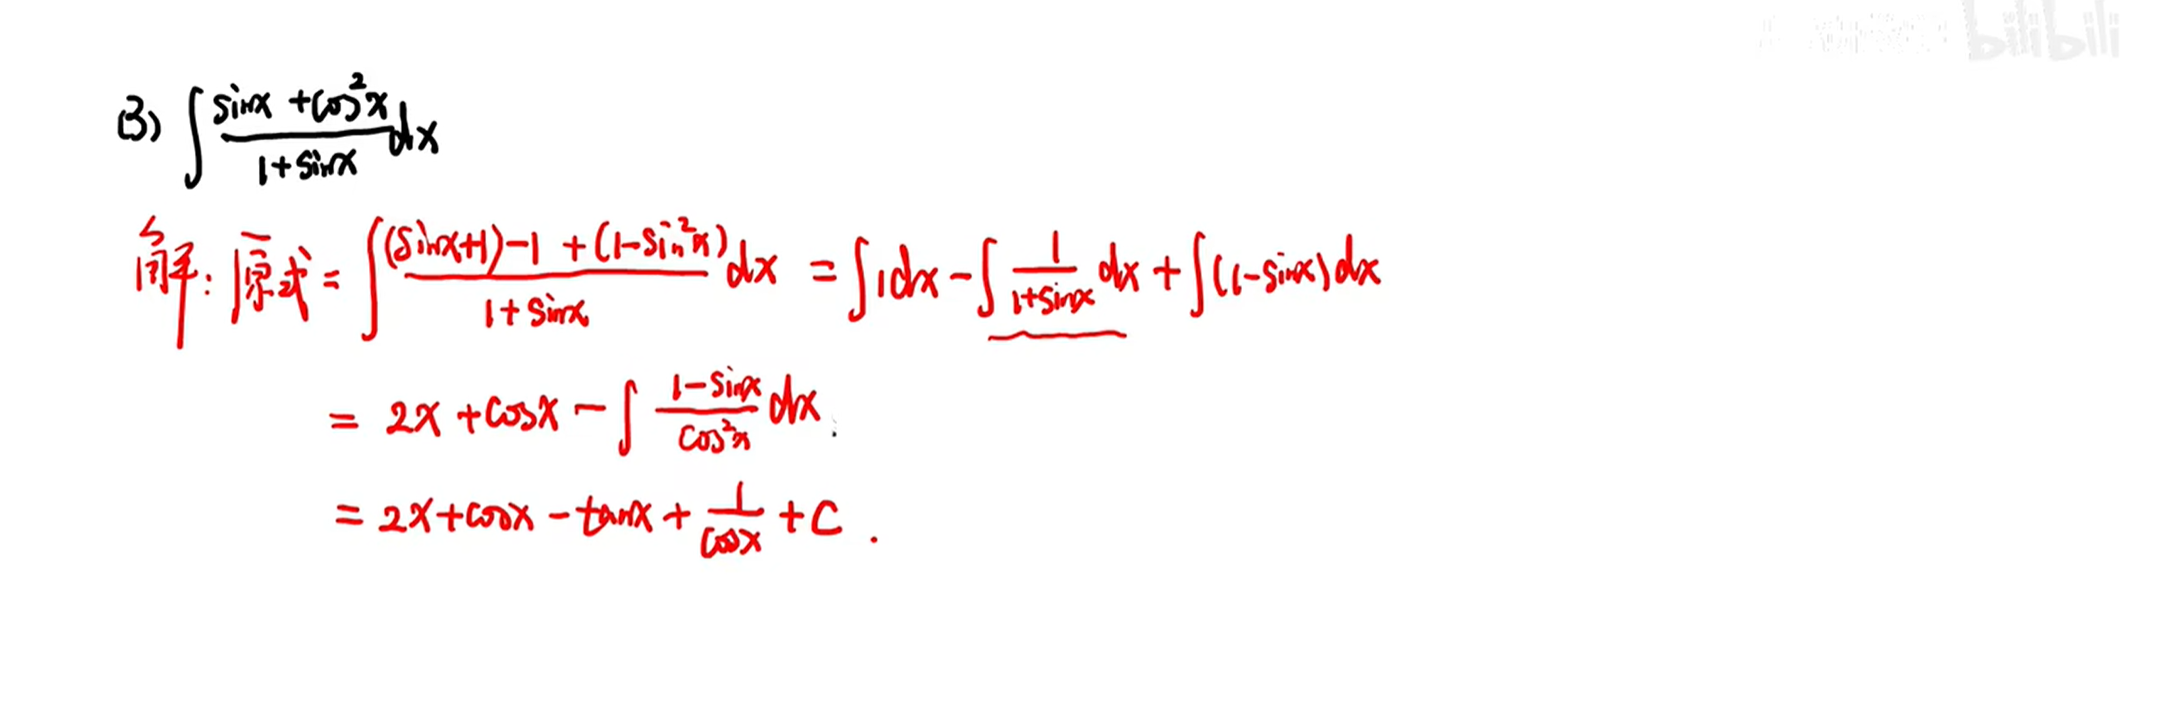 bilibili
(3) ∫ (sinx + cos²x)/(1+sinx) dx
解: 原式 = ∫ ((sinx+1)-1+(1-sin²x))/(1+sinx) dx = ∫1dx - ∫ 1/(1+sinx) dx + ∫(1-sinx)dx
= 2x + cosx - ∫ (1-sinx)/(cos²x) dx
= 2x + cosx - tanx + 1/cosx + C.